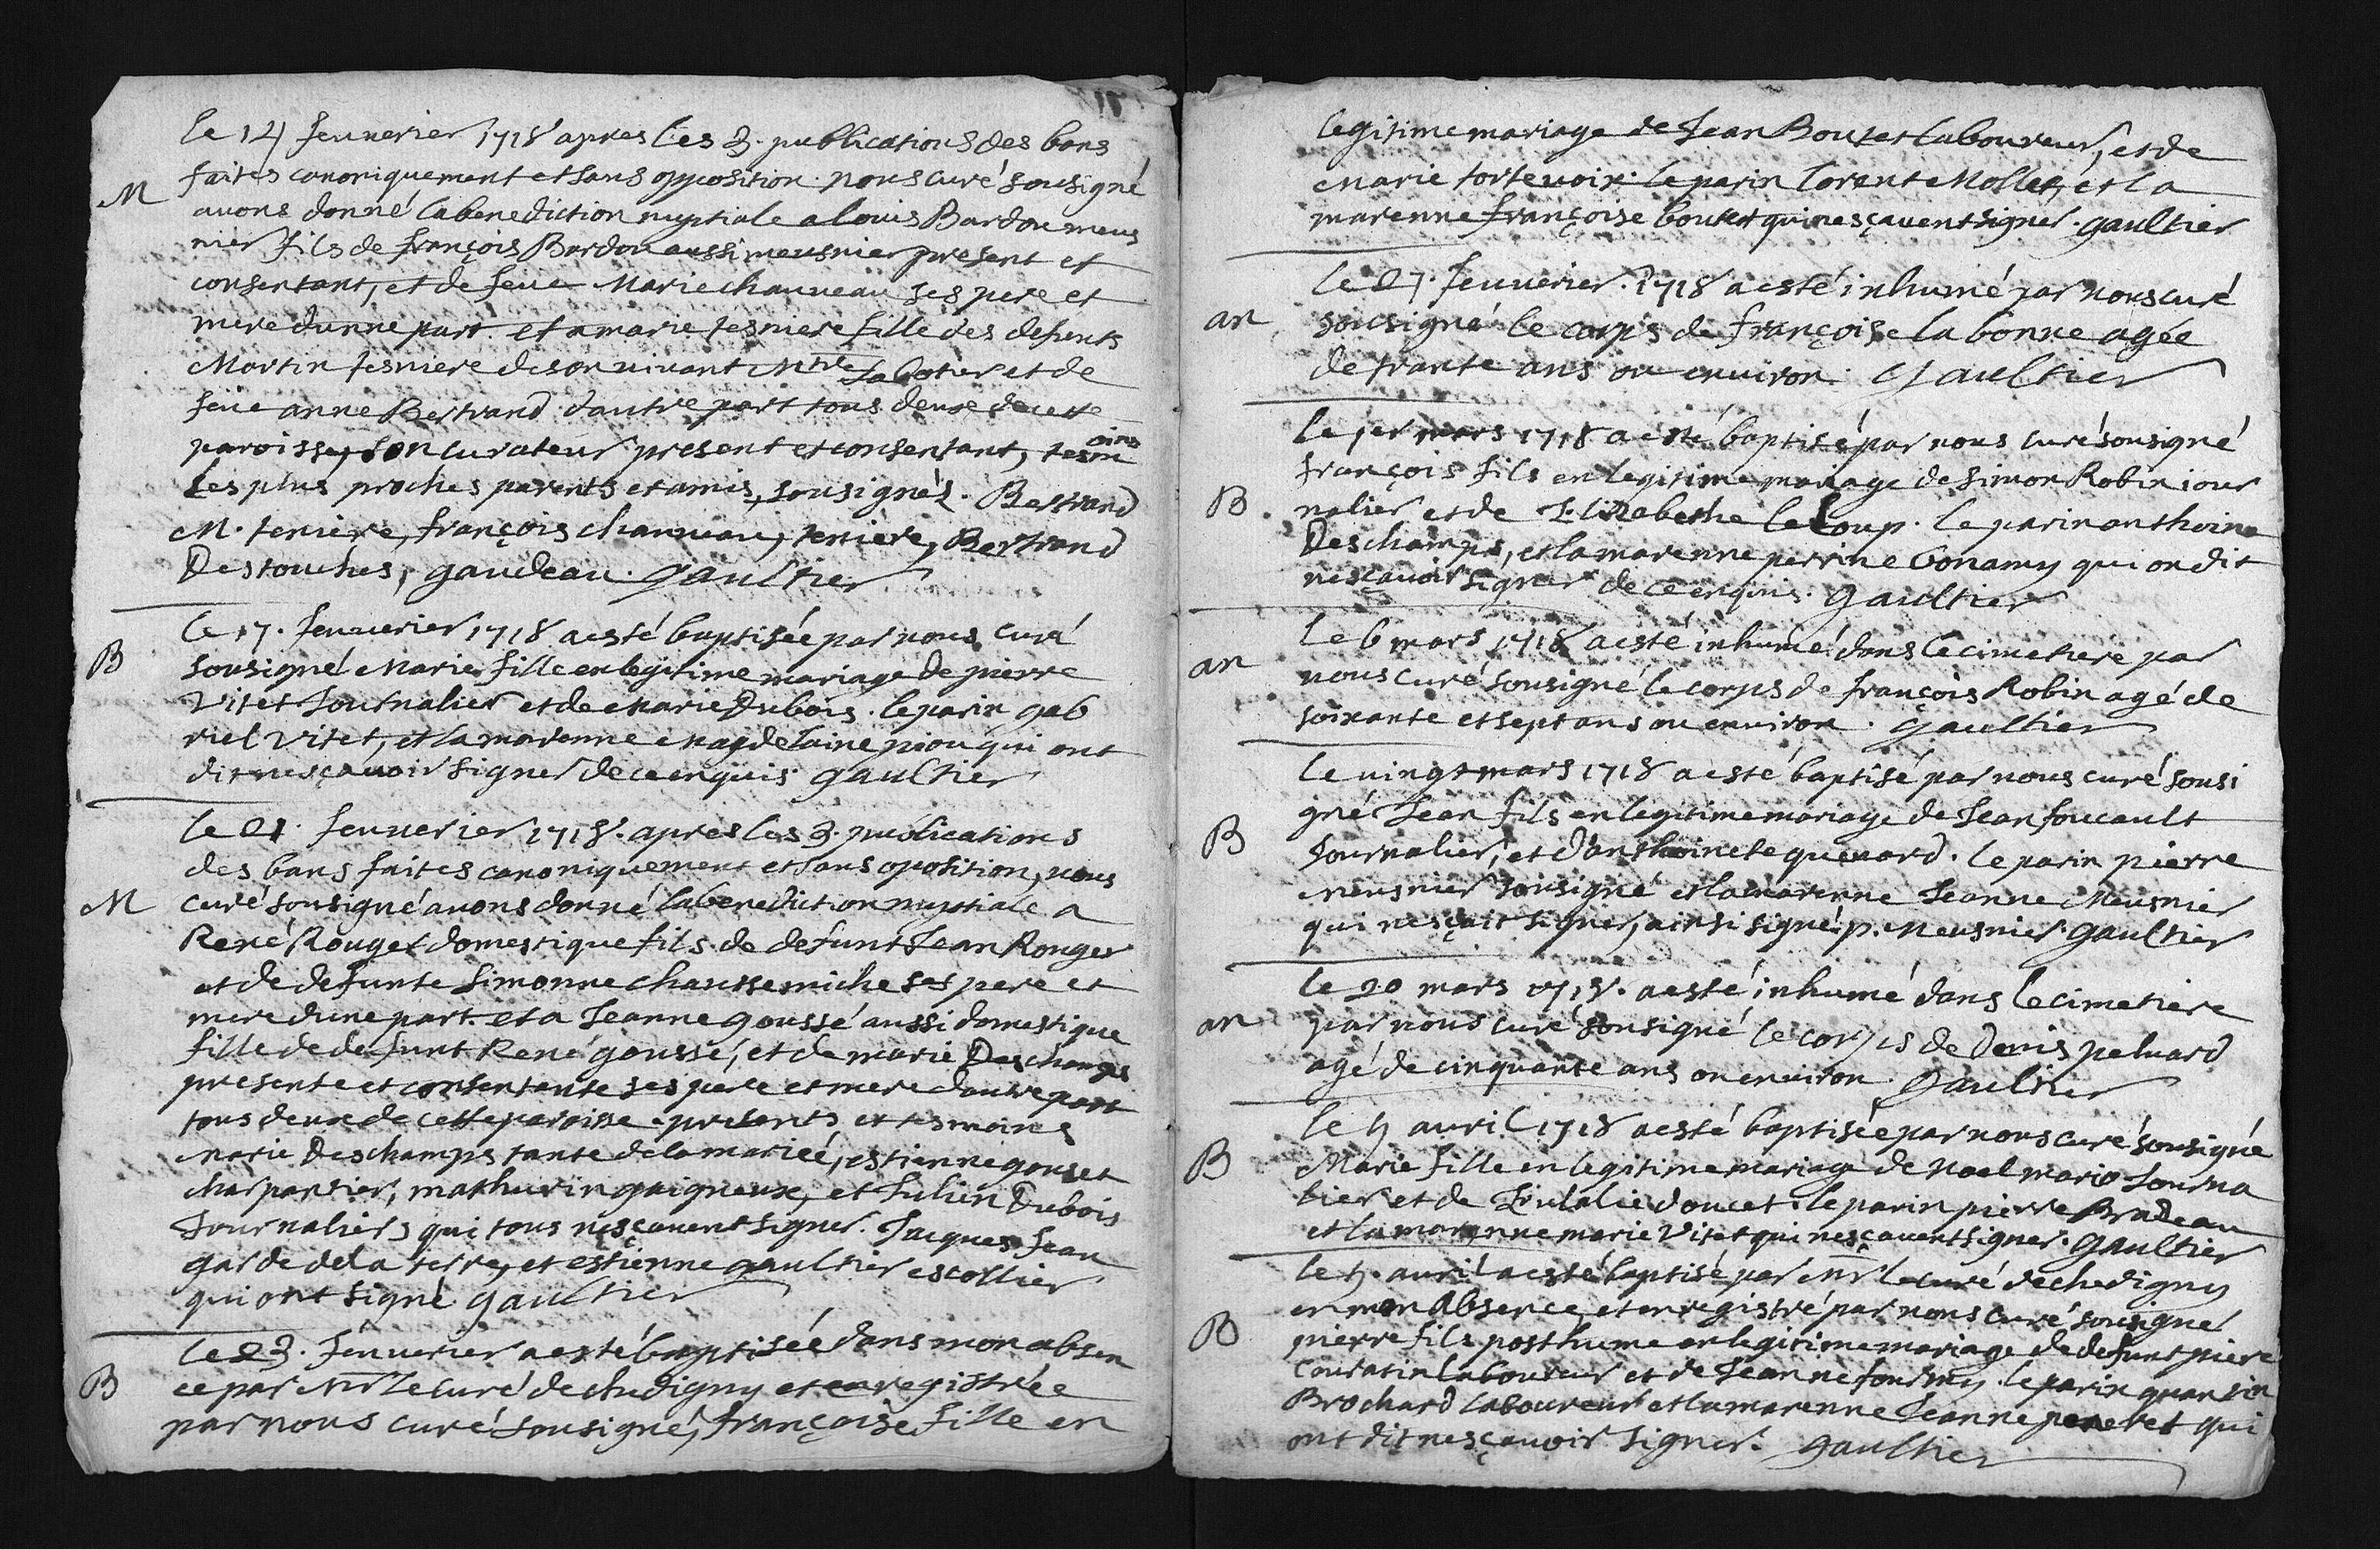 le 14 feuuerier 1718 apres les 3. publications des bans
M
faites canoniquement et sans opposition. nous curé sousigné
auons donné la benediction nuptiale a louis Bardou meus
nier fils de françois Bardou aussi meusnier present et
consentant, et de feue Marie chauueau ses pere et
mere dunne part. et a marie tesniere fille des defunts
Martin tesniere de son uiuant Mtre Sabotier et de
feue anne Bertrand dautre part tous deux de cette
paroisse, son curateur present et consentant, tesmoins
Les plus proches parents et amis, sousignés. Bertrand
M. teniere, françois chauueau, teniere, Bertrand
Destouches, gaudeau. gaultier
le 17. feuuerier 1718 a esté baptisée par nous curé
B
sousigné Marie fille en legitime mariage de pierre
Vitet Journalier et de Marie Dubois. le parin gab
riel Vitet, et la marenne Magdelaine piou qui ont
dit ne sçauoir signer de ce enquis. gaultier
le 21. feuuerier 1718. apres les 3. publications
des bans faites canoniquement et sans oposition, nous
M
curé sousigné auons donné la benediction nuptiale a
René Rouger domestique fils de defunt Jean Rouger
et de defunte Simonne chaussemiche ses pere et
mere dune part. et a Jeanne goussé aussi domestique
fille de defunt René goussé, et de marie Deschamps
presente et consentente ses pere et mere dautre part
tous deux de cette paroisse. presents et tesmoins
Marie Deschamps tante de la mariée, estienne gousset
charpantier, mathurin gaigneux, et Julien Dubois
Journaliers qui tous ne sçauent signer. Jacques Jean
garde de la terre, et estienne gaultier escollier
qui ont signé gaultier
le 23. feuuerier a esté baptisée dans mon absen
B
ce par Mr le curé de chedigny et enregistrée
par nous curé sousigné, françoise fille en
legitime mariage de Jean Boutet laboureur, et de
Marie tortevoix. le parin lorent Mollet, et la
marenne françoise boutet qui ne sçauent signer. gaultier
le 27. feuuerier. 1718 a esté inhumé par nous curé
an
sousigné le corps de françoise labonne agée
de trante ans ou enuiron. gaultier
le 1er mars 1718 a esté baptisé par nous curé sousigné
françois fils en legitime mariage de Simon Robin iour
B
nalier et de Elizabethe le Loup. le parin anthoine
Deschamps, et la marenne perrine bonamy qui on dit
ne sçauoir signer de ce enquis. gaultier
le 6 mars 1718 a esté inhumé dans le cimetiere par
an
nous curé sousigné le corps de françois Robin agé de
soixante et sept ans ou enuiron. gaultier
le uingt mars 1718 a esté baptisé par nous curé sousi
gné Jean fils en legitime mariage de Jean foucault
B
Journalier, et d'anthoinete quenard. le parin pierre
Meusnier sousigné et la marenne Jeanne Meusnier
qui ne sçait signer, ainsi signé p. Meusnier gaultier
le 20 mars 1718. a esté inhumé dans le cimetiere
an
par nous curé sousigné le corps de Denis peluard
agé de cinquante ans ou enuiron. gaultier
le 4 auril 1718 a esté baptisée par nous curé sousigné
B
Marie fille en legitime mariage de noel mario Journa
lier et de Eulalie doucet. le parin pierre Bradeau
et la marenne marie Vitet qui ne sçauent signer. gaultier
le 4. auril a esté baptisé par Mr le curé de chedigny
en mon absence, et enregistré par nous curé sousigné
B
pierre fils posthume en legitime mariage de defunt piere
couratin laboureur et de Jeanne fourmy. le parin quantin
Brochard laboureur et la marenne Jeanne peneret qui
ont dit ne sçauoir signer. gaultier